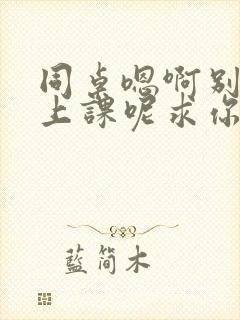 同桌嗯啊别
上課呢求你
藍简木